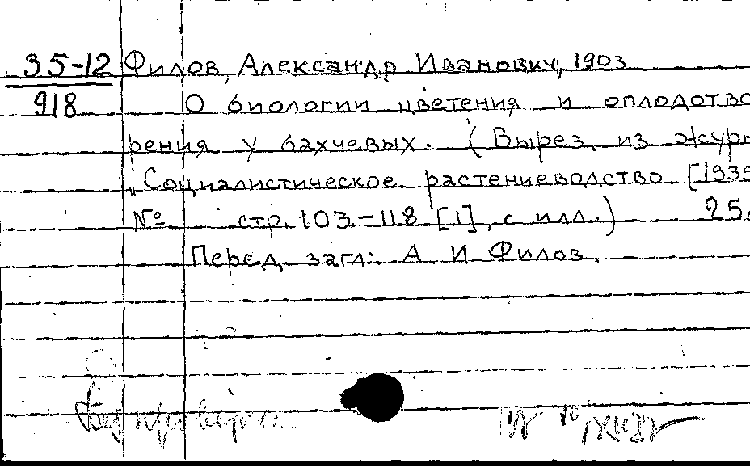 35-12 Филов, Александр Иванович, 1903
918 О биологии цветения и оплодотво
рения у бахчевых. (Вырез. из журн
"Социалистическое растениеводство [1935
№ стр. 103-118 [1], с илл.) 25.
Перед загл: А И Филов.